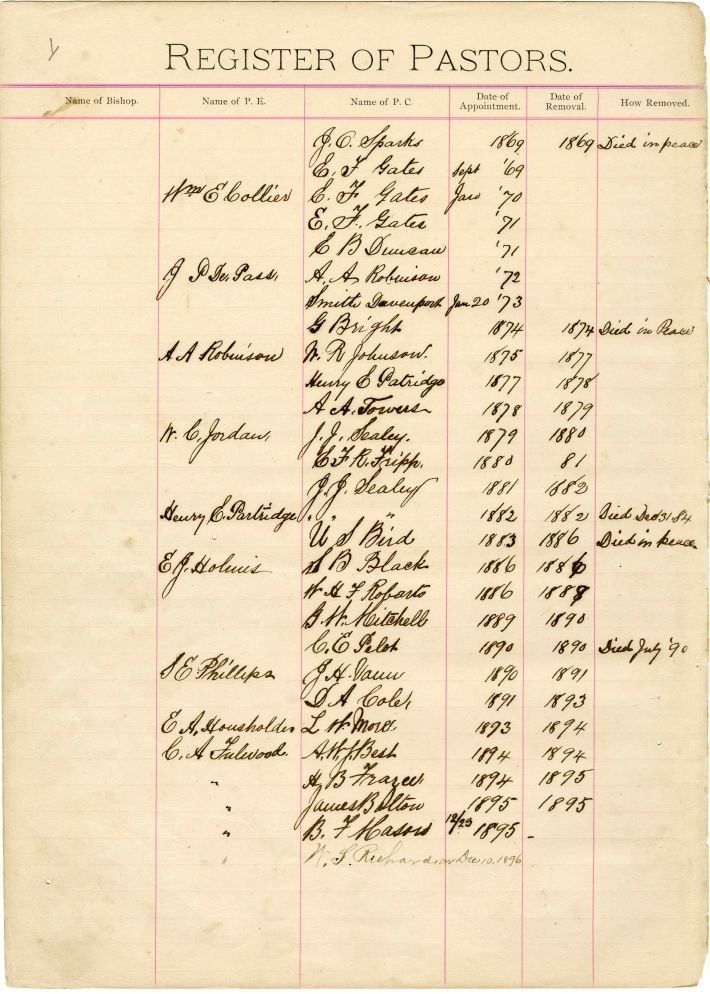 Y
REGISTER OF PASTORS.
Name of Bishop. Name of P. E. Name of P. C. Date of Appointment. Date of Removal. How Removed.
J. C. Sparks 1869 1869 Died in peace
E. F Gates Sept '69
Wm E Collier E. F. Gates Jan '70
E. F. Gates '71
E B Duncan '71
J P De. Pass, A. A Robinson '72
Smith Davenport Jan 20 '73
G Bright 1874 1874 Died in Peace
A A Robinson W. R Johnson. 1875 1877
Henry E Patridge 1877 1878
A A. Towers 1878 1879
W. C. Jordan, J. J. Sealey. 1879 1880
E F. R. Tripp. 1880 81
J. J. Sealey 1881 1882
Henry E. Partridge " " 1882 1882 Died Dec 31 84
U S Bird 1883 1886 Died in peace
E J. Holmes S B Black 1886 1886
W H F Robarts 1886 1888
G. W. Mitchell 1889 1890
C. E Pelot 1890 1890 Died July '90
S E Phillips J H. Vann 1890 1891
D A Cole, 1891 1893
E A. Housholder L W Moore 1893 1894
C. A Fulwood. A. W J Best 1894 1894
" H B Frazee 1894 1895
" James Bolton 1895 1895
" B. F Mason 12/23 1895 -
" W. S. Richardson Dec 10. 1896